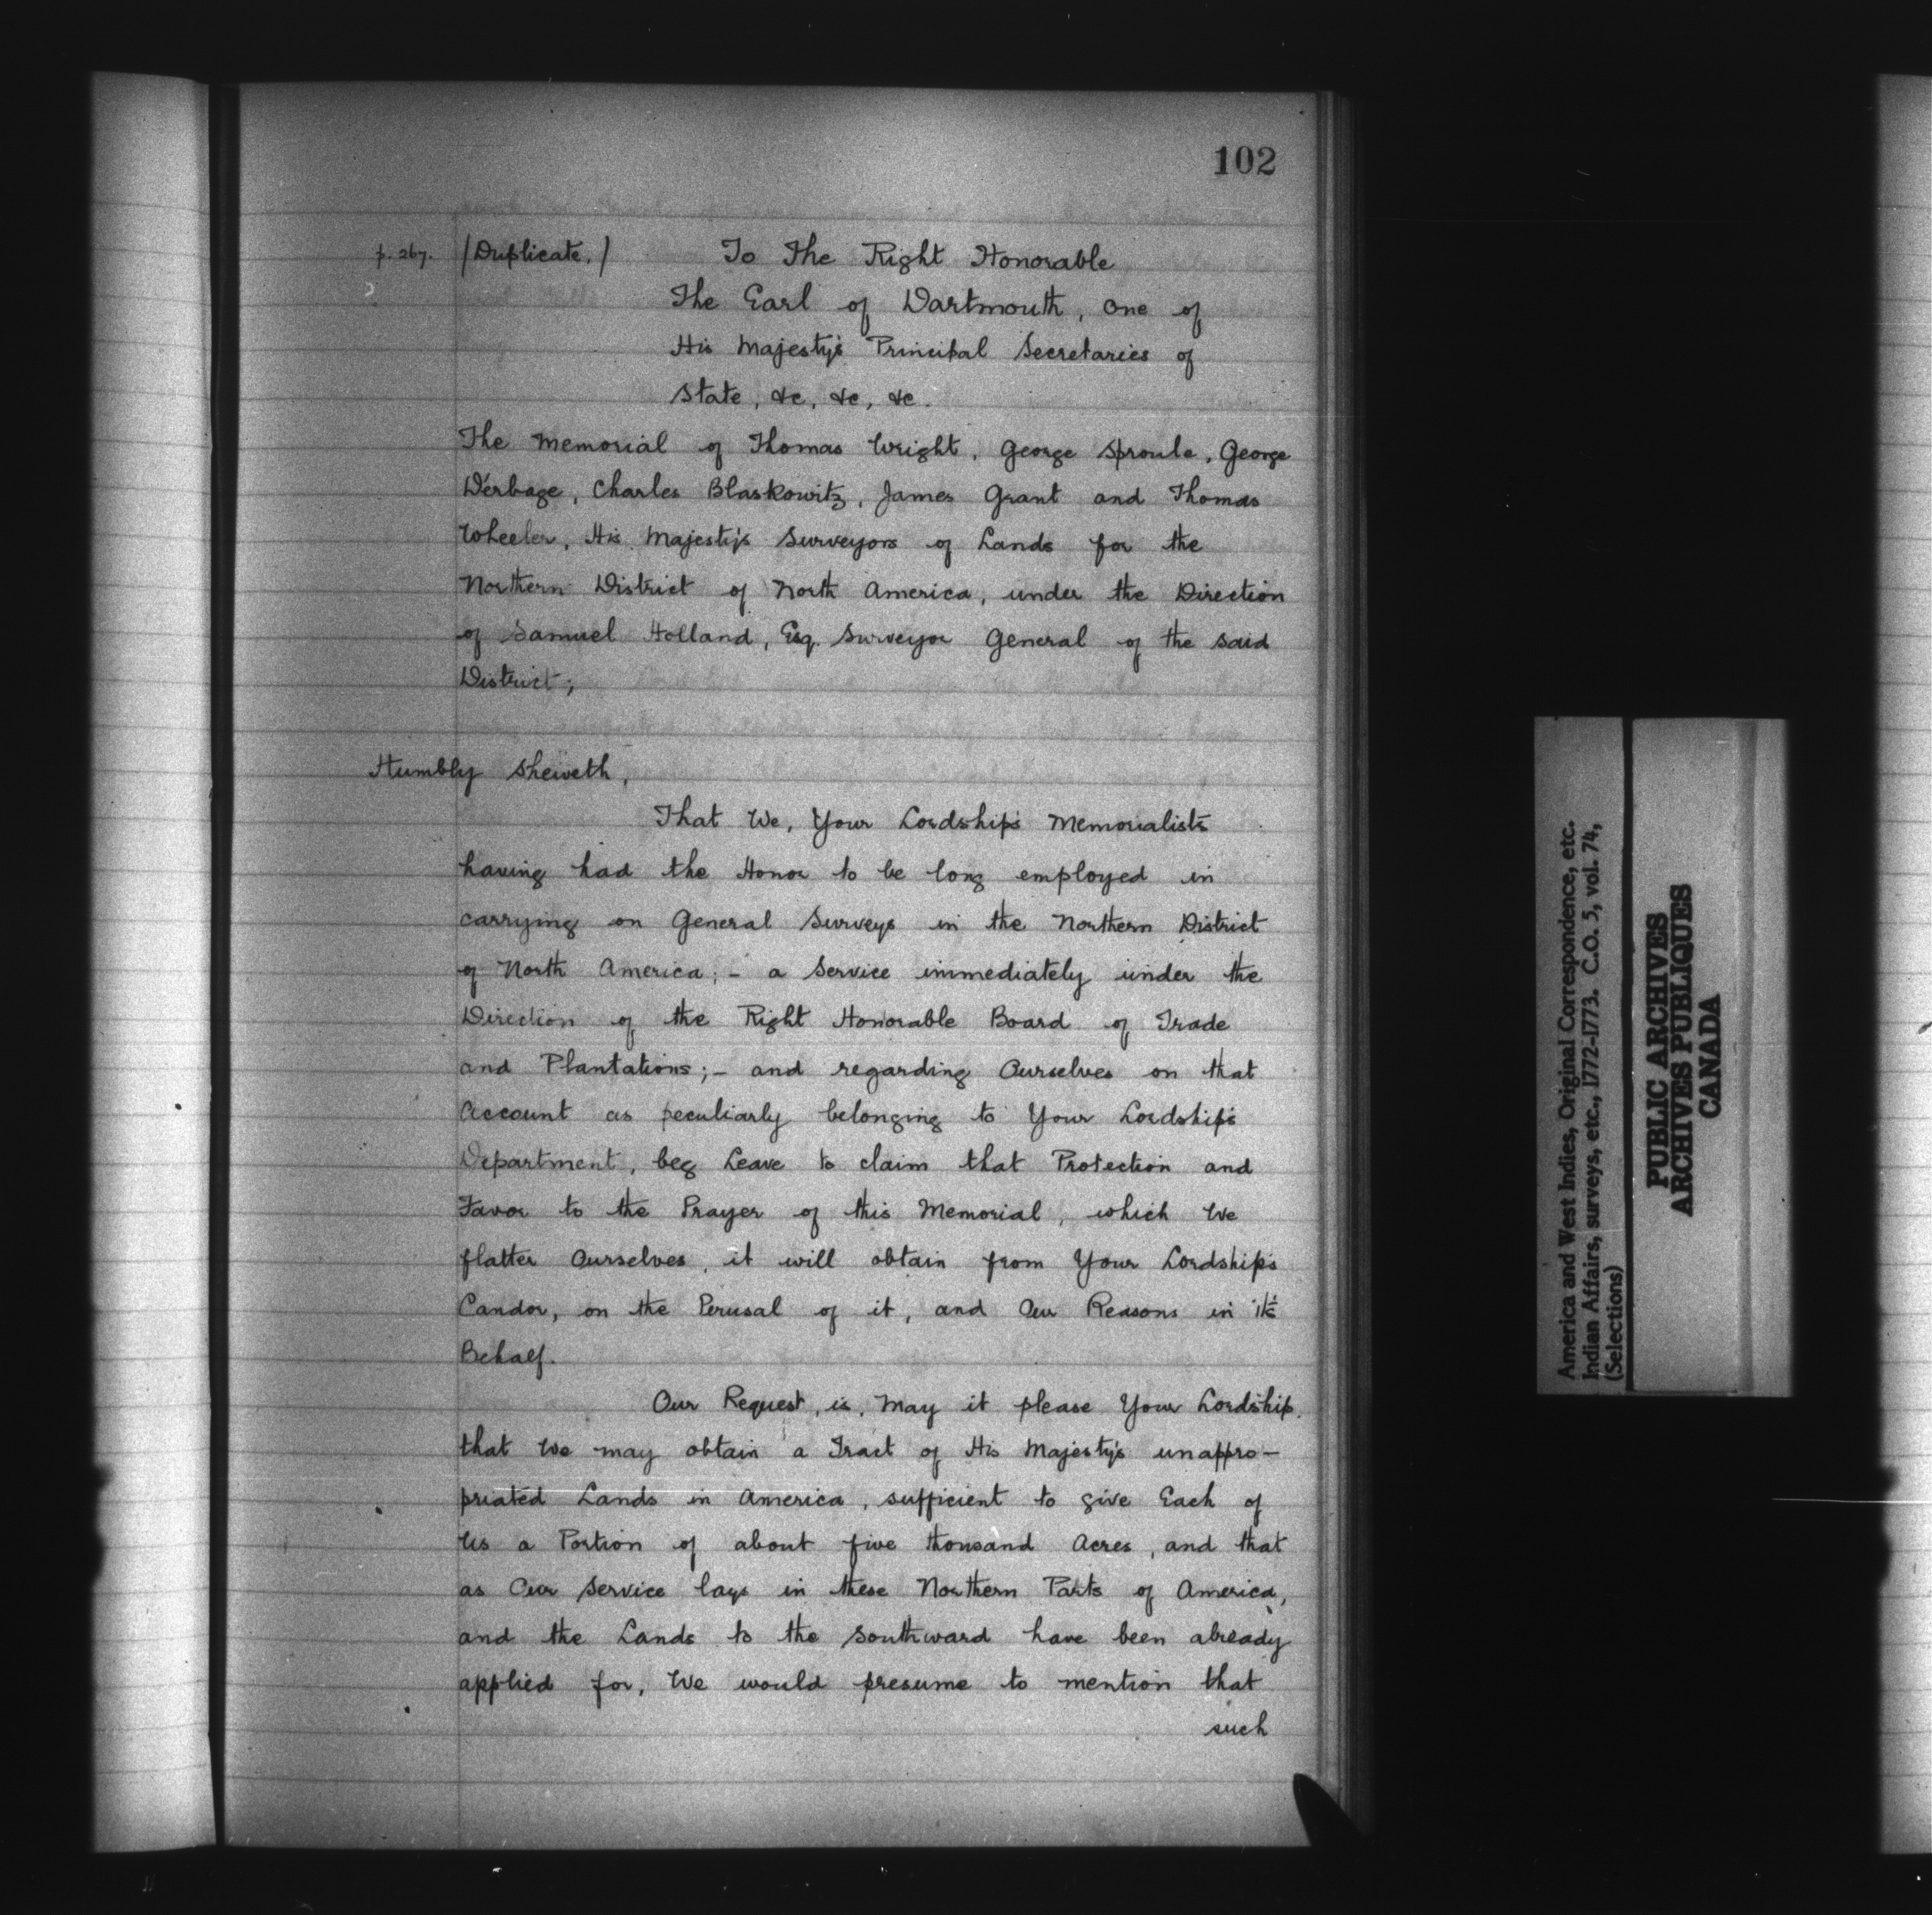 102
p. 267. / Duplicate. / To The Right Honorable
The Earl of Dartmouth, one of
His Majesty's Principal Secretaries of
State, &c, &c, &c.
The Memorial of Thomas Wright, George Sproule, George
D'erbage, Charles Blaskowitz, James Grant and Thomas
Wheeler, His Majesty's Surveyors of Lands for the
Northern District of North America, under the Direction
of Samuel Holland, Esq. Surveyor General of the said
District;
Humbly Sheweth,
That We, Your Lordship's Memorialists
having had the Honor to be long employed in
carrying on General Surveys in the Northern District
of North America; – a Service immediately under the
Direction of the Right Honorable Board of Trade
and Plantations; – and regarding Ourselves on that
Account as peculiarly belonging to Your Lordship's
Department, beg Leave to claim that Protection and
Favor to the Prayer of this Memorial, which We
flatter Ourselves, it will obtain from Your Lordship's
Candor, on the Perusal of it, and Our Reasons in it's
Behalf.
Our Request, is, May it please Your Lordship,
that We may obtain a Tract of His Majesty's unappro-
priated Lands in America, sufficient to give Each of
Us a Portion of about five thousand Acres, and that
as Our Service lays in these Northern Parts of America,
and the Lands to the Southward have been already
applied for, We would presume to mention that
such
America and West Indies, Original Correspondence, etc.
Indian Affairs, surveys, etc., 1772-1773. C.O. 5, vol. 74,
(Selections)
PUBLIC ARCHIVES
ARCHIVES PUBLIQUES
CANADA